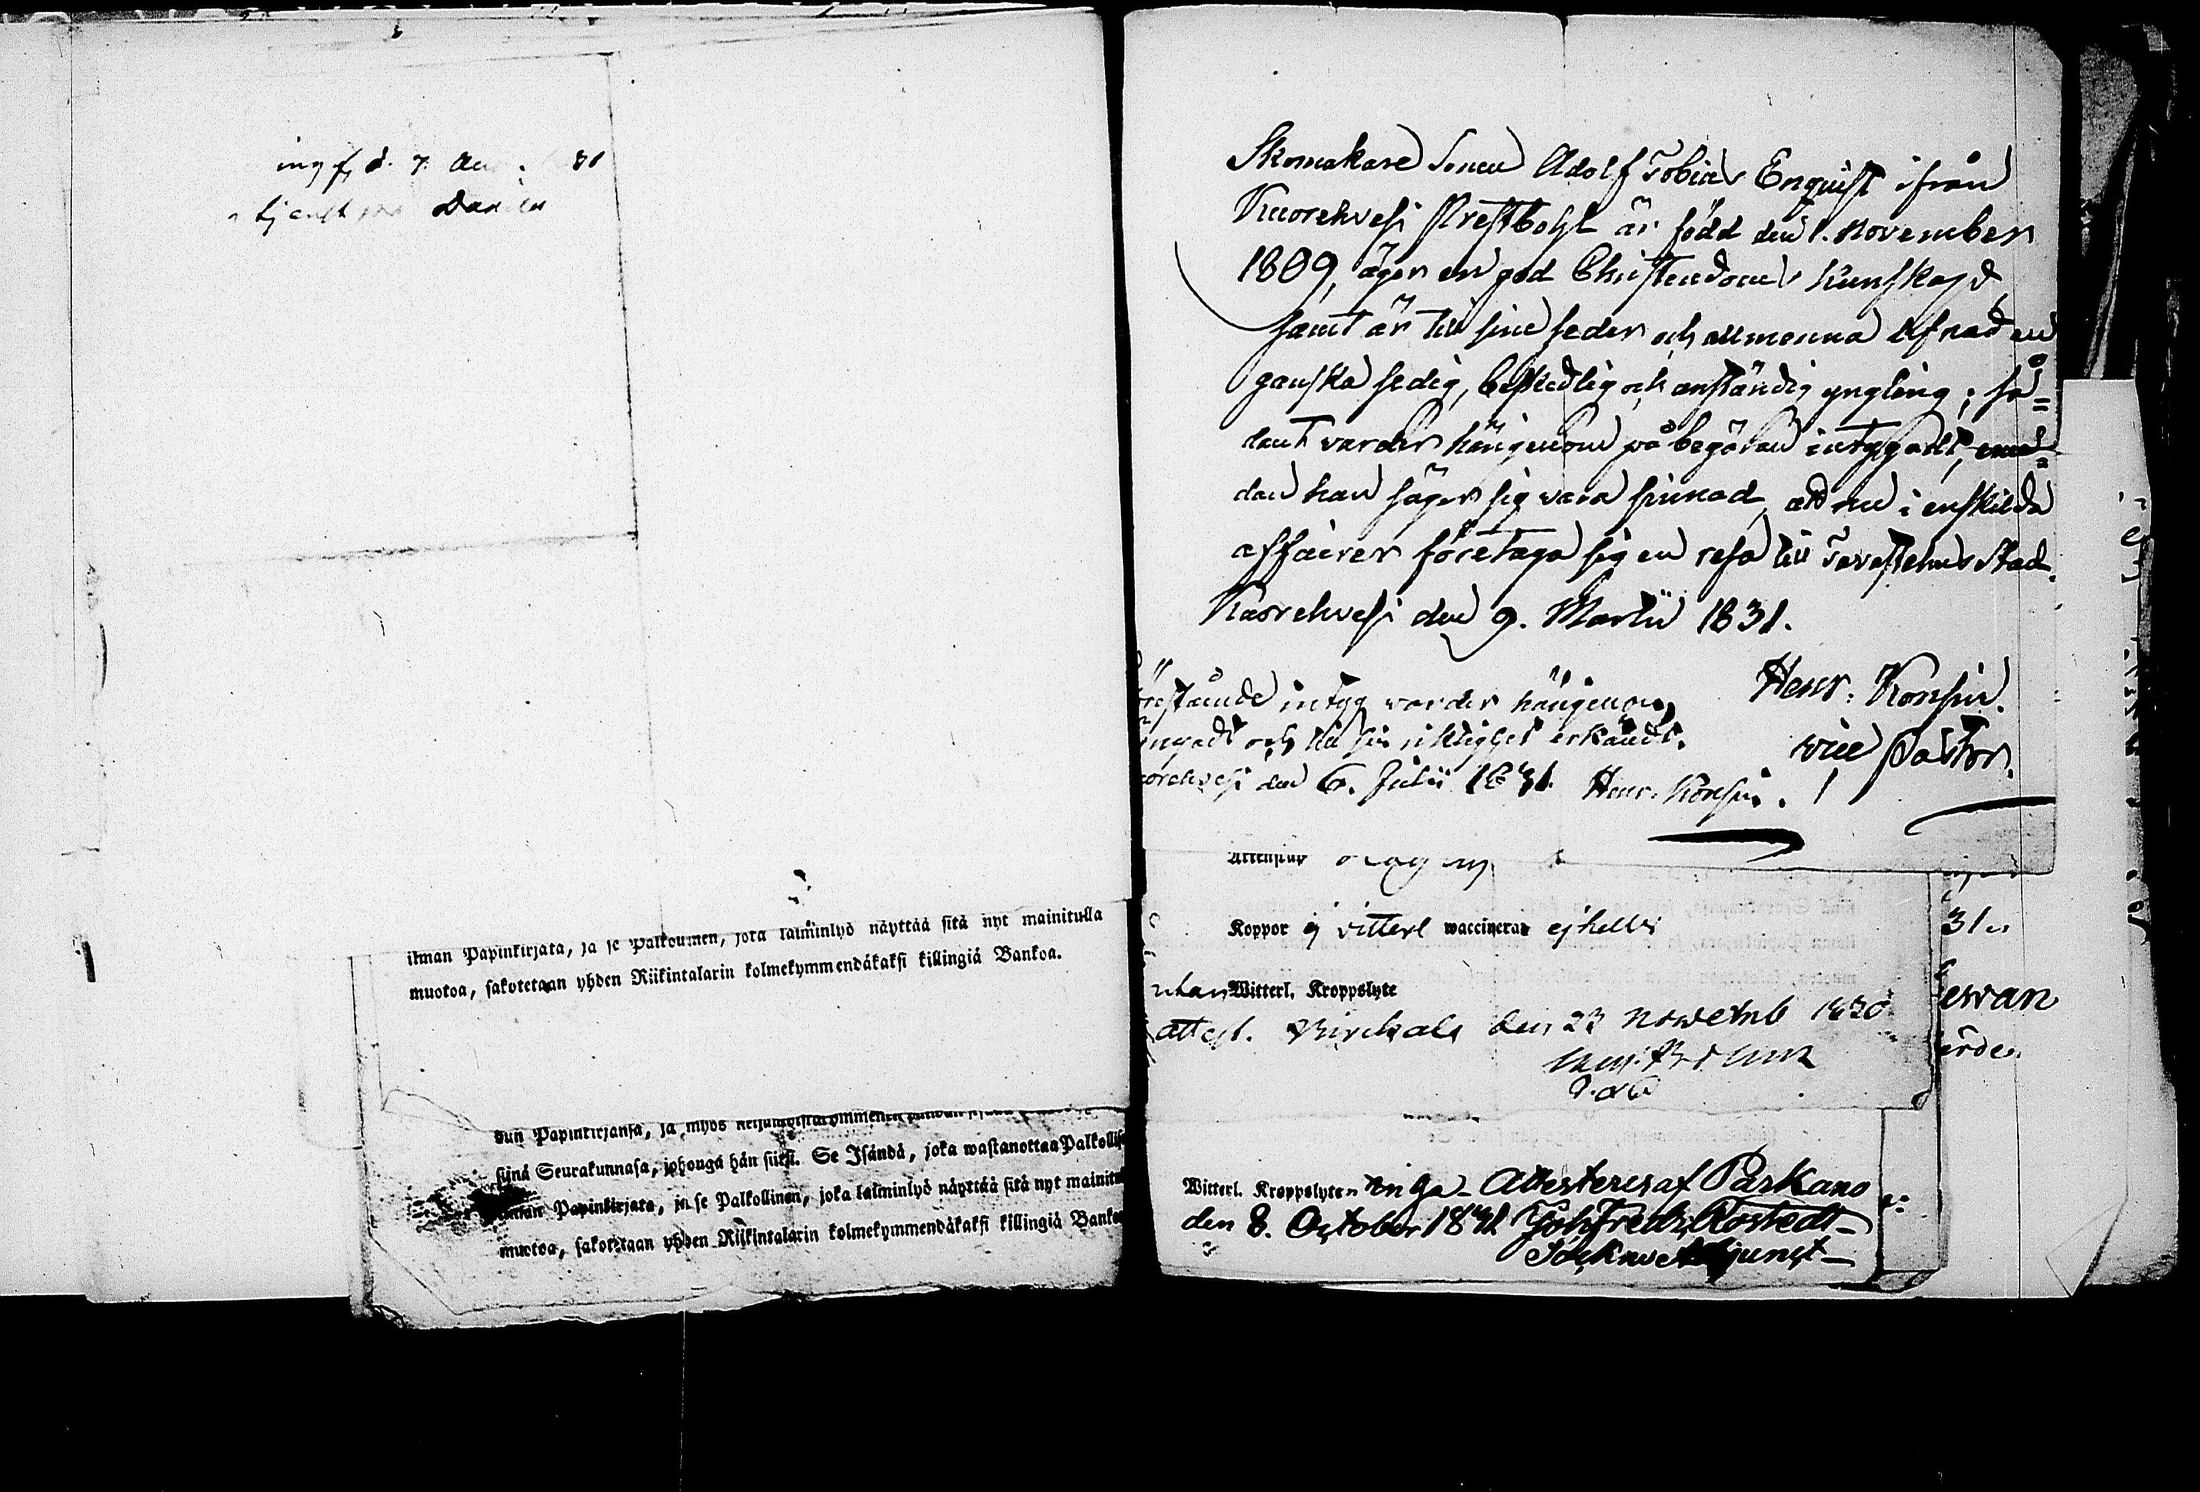 ingf, d. 7. Au 31
tjenst Daniel
ilman Papinkirjata, ja se Palkoumen, jota laiminlyö näyttää sitä nyt mainitulla
muotoa, sakotetaan yhden Riikintalarin kolmekymmendäkaksi killingiä Bankoa.
dun Papinkirjansa, ja myös
siinä Seurakunnasa, johonga hän siirsi. Se Isändä, joka wastanottaa Palkollis
ilman Papinkirjata, ja se Palkollinen, joka laiminlyö näyttää sitä nyt mainitu
muotoa, sakotetaan yhden Riikintalarin kolmekymmendäkaksi killingiä Banko
Skomakare Sonen Adolf Tobias Enquist ifrån
Kuorehvesi Prestbohl är född den 1. November
1809, äger en god Christendoms kunskap,
samt är till sine seder och allmenna lefnad en
ganska sedig, beskedlig och anständig yngling; så=
dant varder härigenom på begäran intygadt, eme=
dan han säger sig vara sinnad, att nu i enskilda
affairer företaga sig en resa till Tavastehus Stad.
Kuorehvesi den 9. Martii 1831.
Henr. Konsin.
vice Pastor.
örestående intyg varder härigenom
och till sin riktighet erkändt.
orehvesi den 6. Julii 1831. Henr. Konsin.
Attenstup
Koppor ej vitterl waccinerad ej heller
utan Witterl. Kroppslyte
attest. Birckala den 23 Novemb 1830
31
ewan
örde
Witterl. Kroppslyten inga Attesteres af Parkano
den 8. October 1831 Joh. Fredr. Rostedt
Sockne Adjunct